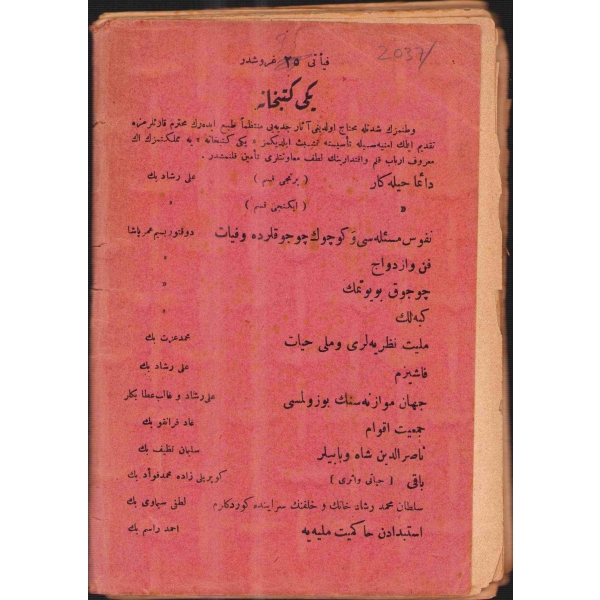 2037/
فیأتی ٢٥ غروشدر
یکی کتبخانه
وطنمزك شدتله محتاج اولدیغی آثار جدیه‌یی منتظماً طبع ایده‌رك محترم قارئلرمزه
تقدیم ایتمك امنیه‌سیله تأسیسنه تشبث ایلدیکمز « یکی کتبخانه » یه مملکتمزك اك
معروف ارباب قلم و اقتدارینك لطف معاونتلری تأمین قلنمشدر.
دائما حیله‌کار ( برنجی قسم ) علی رشاد بك
« ( ایکنجی قسم ) «
نفوس مسئله‌سی و کوچوك چوجوقلرده وفیات دوقتور بسیم عمر پاشا
فن و ازدواج «
چوجوق بویوتمك «
کبه‌لك «
ملیت نظریه‌لری و ملی حیات محمد عزت بك
فاشیزم علی رشاد بك
جهان موازنه‌سنك بوزولمسی علی رشاد و غالب عطا بکلر
جمعیت اقوام عاد فرانقو بك
ناصرالدین شاه و بابیلر سلیمان نظیف بك
باقی ( حیاتی و اثری ) کوپریلی زاده محمد فوأد بك
سلطان محمد رشاد خانك و خلفنك سراینده کوردکلرم لطفی سیماوی بك
استبداددن حاکمیت ملیه‌یه احمد راسم بك